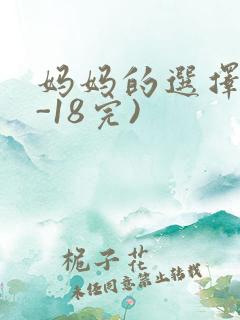 妈妈的選擇
-18完)
栀子花
未经同意禁止转载